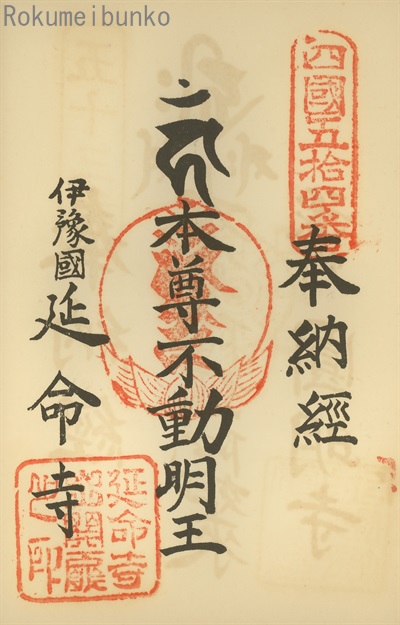 Rokumeibunko
四國五拾四番
奉納經
本尊不動明王
伊豫國
延命寺
延命寺